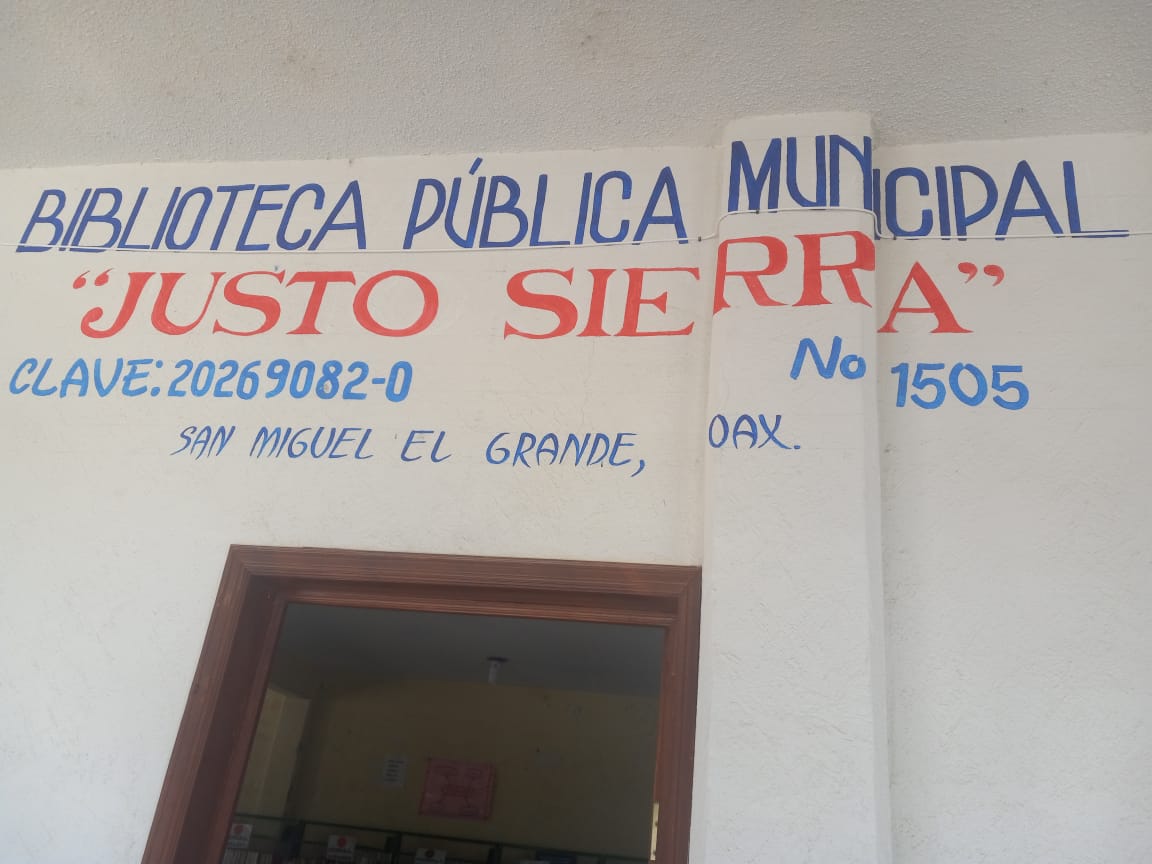 BIBLIOTECA PÚBLICA MUNICIPAL
"JUSTO SIERRA"
CLAVE: 20269082-0 No 1505
SAN MIGUEL EL GRANDE, OAX.